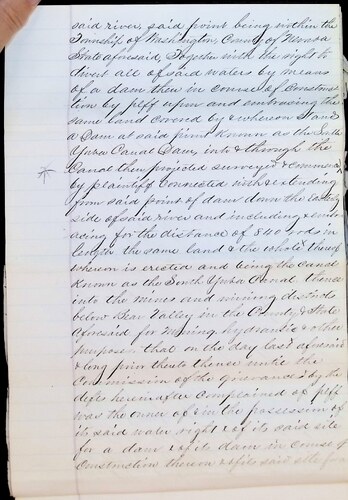 said river, said point being within the
Township of Washington, County of Nevada
State aforesaid, Together with the right to
divert all of said waters by means
of a dam then in course of construc
tion by plff upon and embracing the
same land covered by & whereon stands
a Dam at said point known as the South
Yuba Canal Dam, into & through the
Canal then projected surveyed & commenced
by plaintiff connected with & extending
from said point of dam down the
side of said river and including & embr
acing for the distance of 840 rods in
length the same land & the whole thereof
whereon is erected and being the canal
known as the South Yuba Canal thence
into the mines and mining districts
below Bear Valley in the County & State
aforesaid for mining, hydraulic & other
purposes, that on the day last aforesaid
& long prior thereto thence until the
Commission of the grievances by the
defts hereinafter complained of plff
was the owner of & in the possession of
its said water right & of its said site
for a dam & of its dam in course of
construction thereon & of its said site for